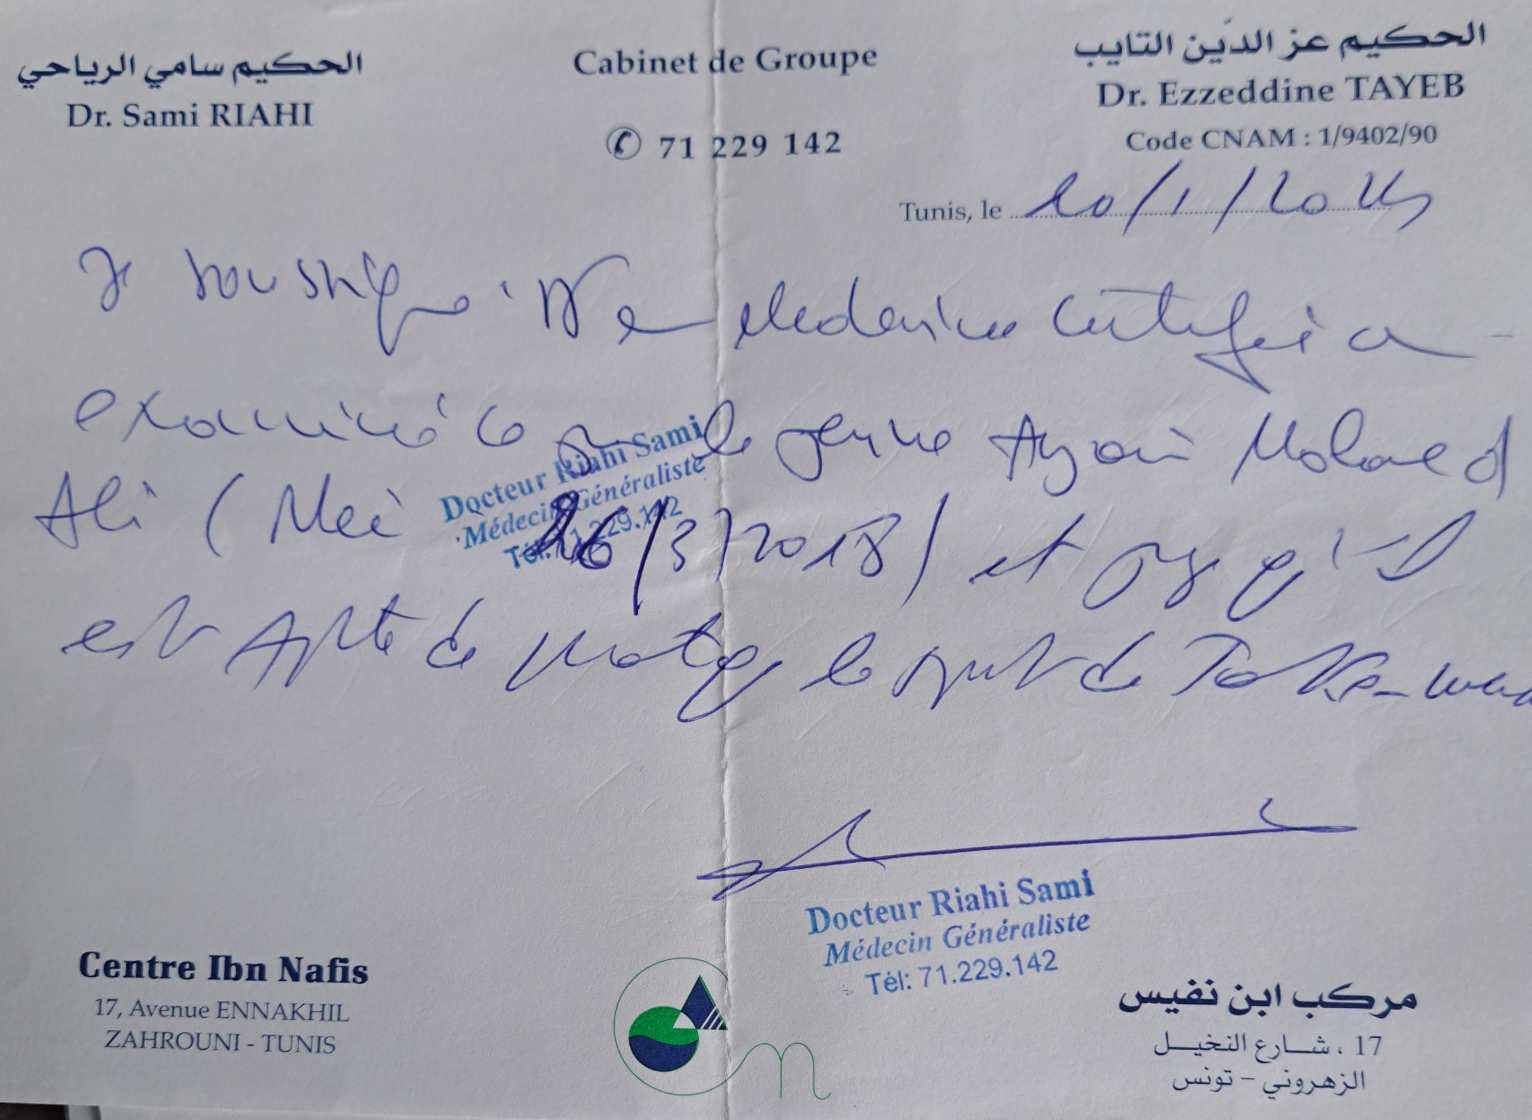 الحكيم سامي الرياحي
Dr. Sami RIAHI
Cabinet de Groupe
✆ 71 229 142
الحكيم عز الدّين التايب
Dr. Ezzeddine TAYEB
Code CNAM : 1/9402/90
Tunis, le 20/1/2025
Je soussigné Dr en Médecine certifie a
examiné ce jour le jeune Ayari Mohamed
Ali (Né 26/3/2018) et qu'il
est Apte de pratiquer le sport de
Docteur Riahi Sami
Médecin Généraliste
Tél: 71.229.142
Docteur Riahi Sami
Médecin Généraliste
Tél: 71.229.142
Centre Ibn Nafis
17, Avenue ENNAKHIL
ZAHROUNI - TUNIS
مركب ابن نفيس
17 ، شارع النخيل
الزهروني - تونس